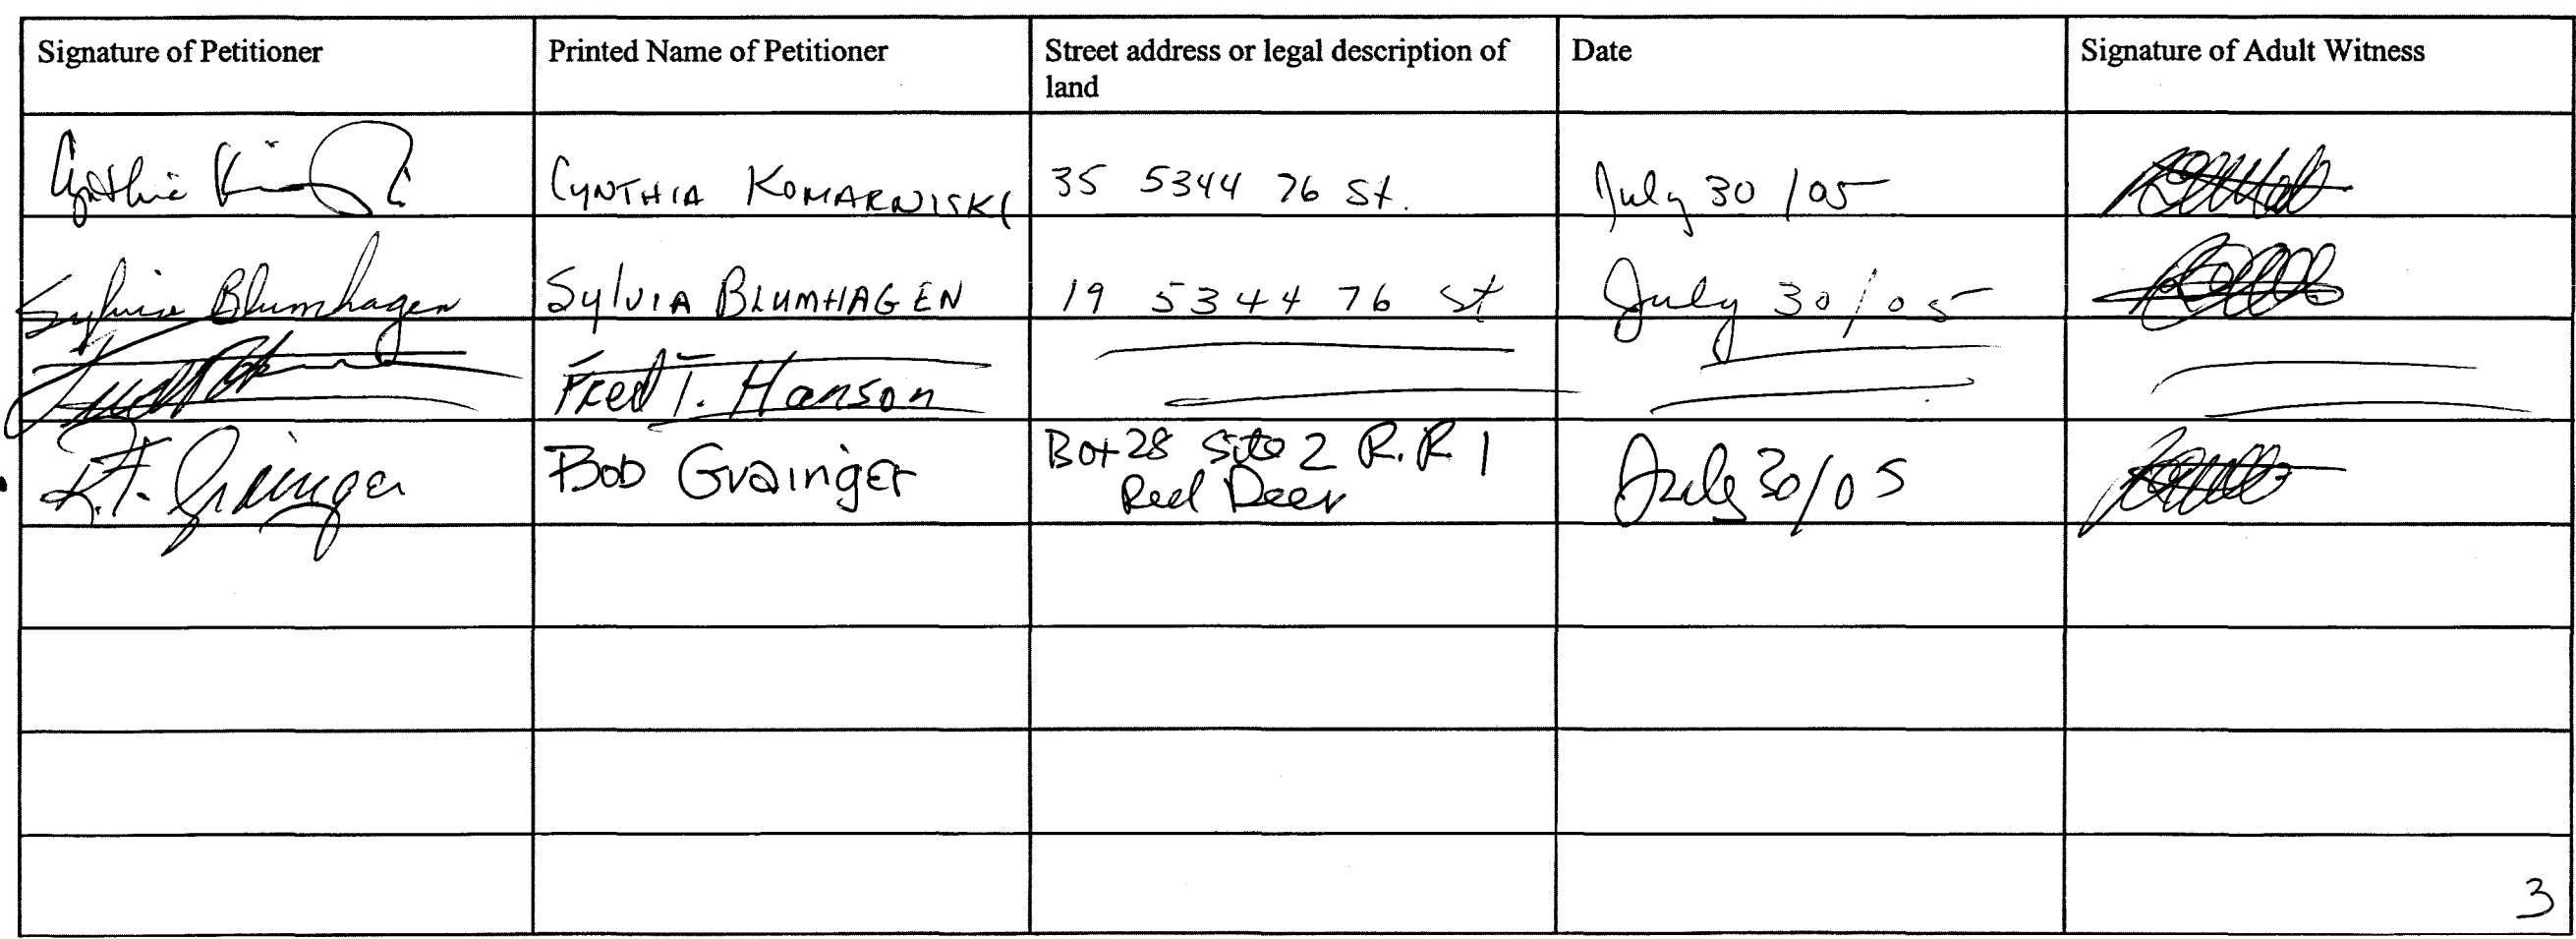 Signature of Petitioner Printed Name of Petitioner Street address or legal description of land Date Signature of Adult Witness
Cynthia CYNTHIA KOMARNISKI 35 5344 76 St. July 30 /05
Sylvia Blumhagen SylVIA BLUMHAGEN 19 5344 76 st July 30/05
Fred T. Hanson
R.F. Grainger Bob Grainger Box 28 Site 2 R.R 1 Red Deer July 30/05
3